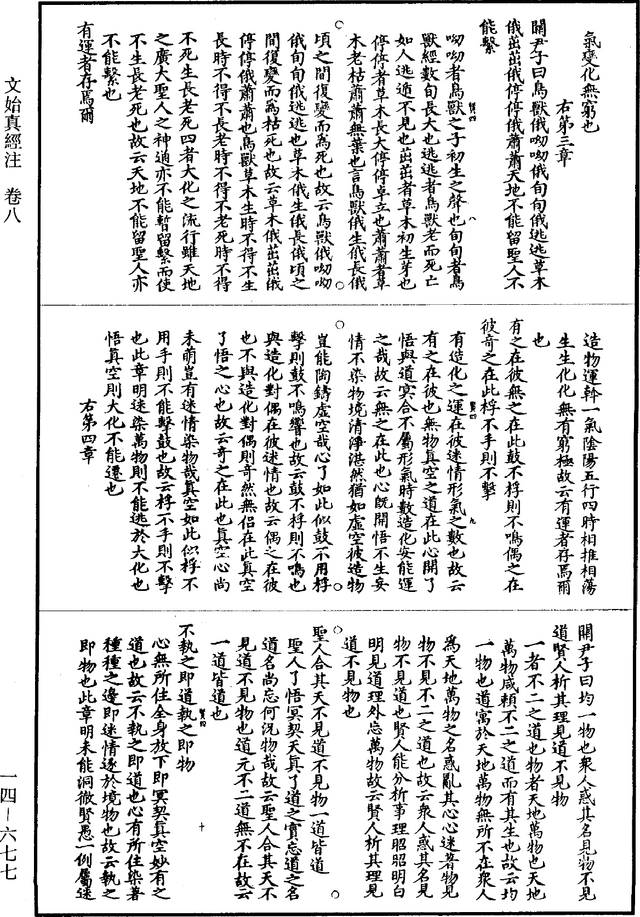 氣變化無窮也
右第三章
關尹子曰鳥獸俄呦呦俄旬旬俄逃逃草木
俄茁茁俄停停俄蕭蕭天地不能留聖人不
能繫
呦呦者鳥獸之子初生之聲也旬旬者鳥
獸經數旬長大也逃逃者鳥獸老而死亡
如人逃遁不見也茁茁者草木初生芽也
停停者草木長大停停卓立也蕭蕭者草
木老枯蕭蕭無葉也言鳥獸俄生俄長俄
頃之間復變而為死也故云鳥獸俄呦呦
俄旬旬俄逃逃也草木俄生俄長俄頃之
間復變而為枯死也故云草木俄茁茁俄
停停俄蕭蕭也鳥獸草木生時不得不生
長時不得不長老時不得不老死時不得
不死生長老死四者大化之流行雖天地
之廣大聖人之神通亦不能暫留繫而使
不生長老死也故云天地不能留聖人亦
不能繫也
有運者存焉爾
造物運斡一氣陰陽五行四時相推相蕩
生生化化無有窮極故云有運者存焉爾
也
有之在彼無之在此鼓不桴則不鳴偶之在
彼奇之在此桴不手則不擊
有造化之運在彼迷情形氣之數也故云
有之在彼也無物真空之道在此心開了
悟與道冥合不屬形氣時數造化安能運
之哉故云無之在此也心既開悟不生妄
情不染物境清淨湛然猶如虛空彼造物
豈能陶鑄虛空哉心了如此似鼓不用桴
擊則鼓不鳴響也故云鼓不桴則不鳴也
與造化對偶在彼迷情也故云偶之在彼
也不與造化對偶則奇然無侶在此真空
了悟之心也故云奇之在此也真空心尚
未萌豈有迷情染物哉真空如此似桴不
用手則不能擊鼓也故云桴不手則不擊
也此章明迷染萬物則不能逃於大化也
悟真空則大化不能遷也
右第四章
關尹子曰均一物也衆人惑其名見物不見
道賢人析其理見道不見物
一者不二之道也物者天地萬物也天地
萬物咸賴不二之道而有其生也故云均
一物也道寓於天地萬物無所不在衆人
為天地萬物之名惑亂其心心迷著物見
物不見不二之道也故云衆人惑其名見
物不見道也賢人能分析事理昭昭明白
明見道理外忘萬物故云賢人析其理見
道不見物也
聖人合其天不見道不見物一道皆道
聖人了悟冥契天真了道之實忘道之名
道名尚忘何況物哉故云聖人合其天不
見道不見物也道元不二道無不在故云
一道皆道也
不執之即道執之即物
心無所住全身放下即冥契真空妙有之
道也故云不執之即道也心有所住染著
種種之邊即迷情逐於境物也故云執之
即物也此章明未能洞徹賢愚一例屬迷
文始真經注 卷八
一四－六七七